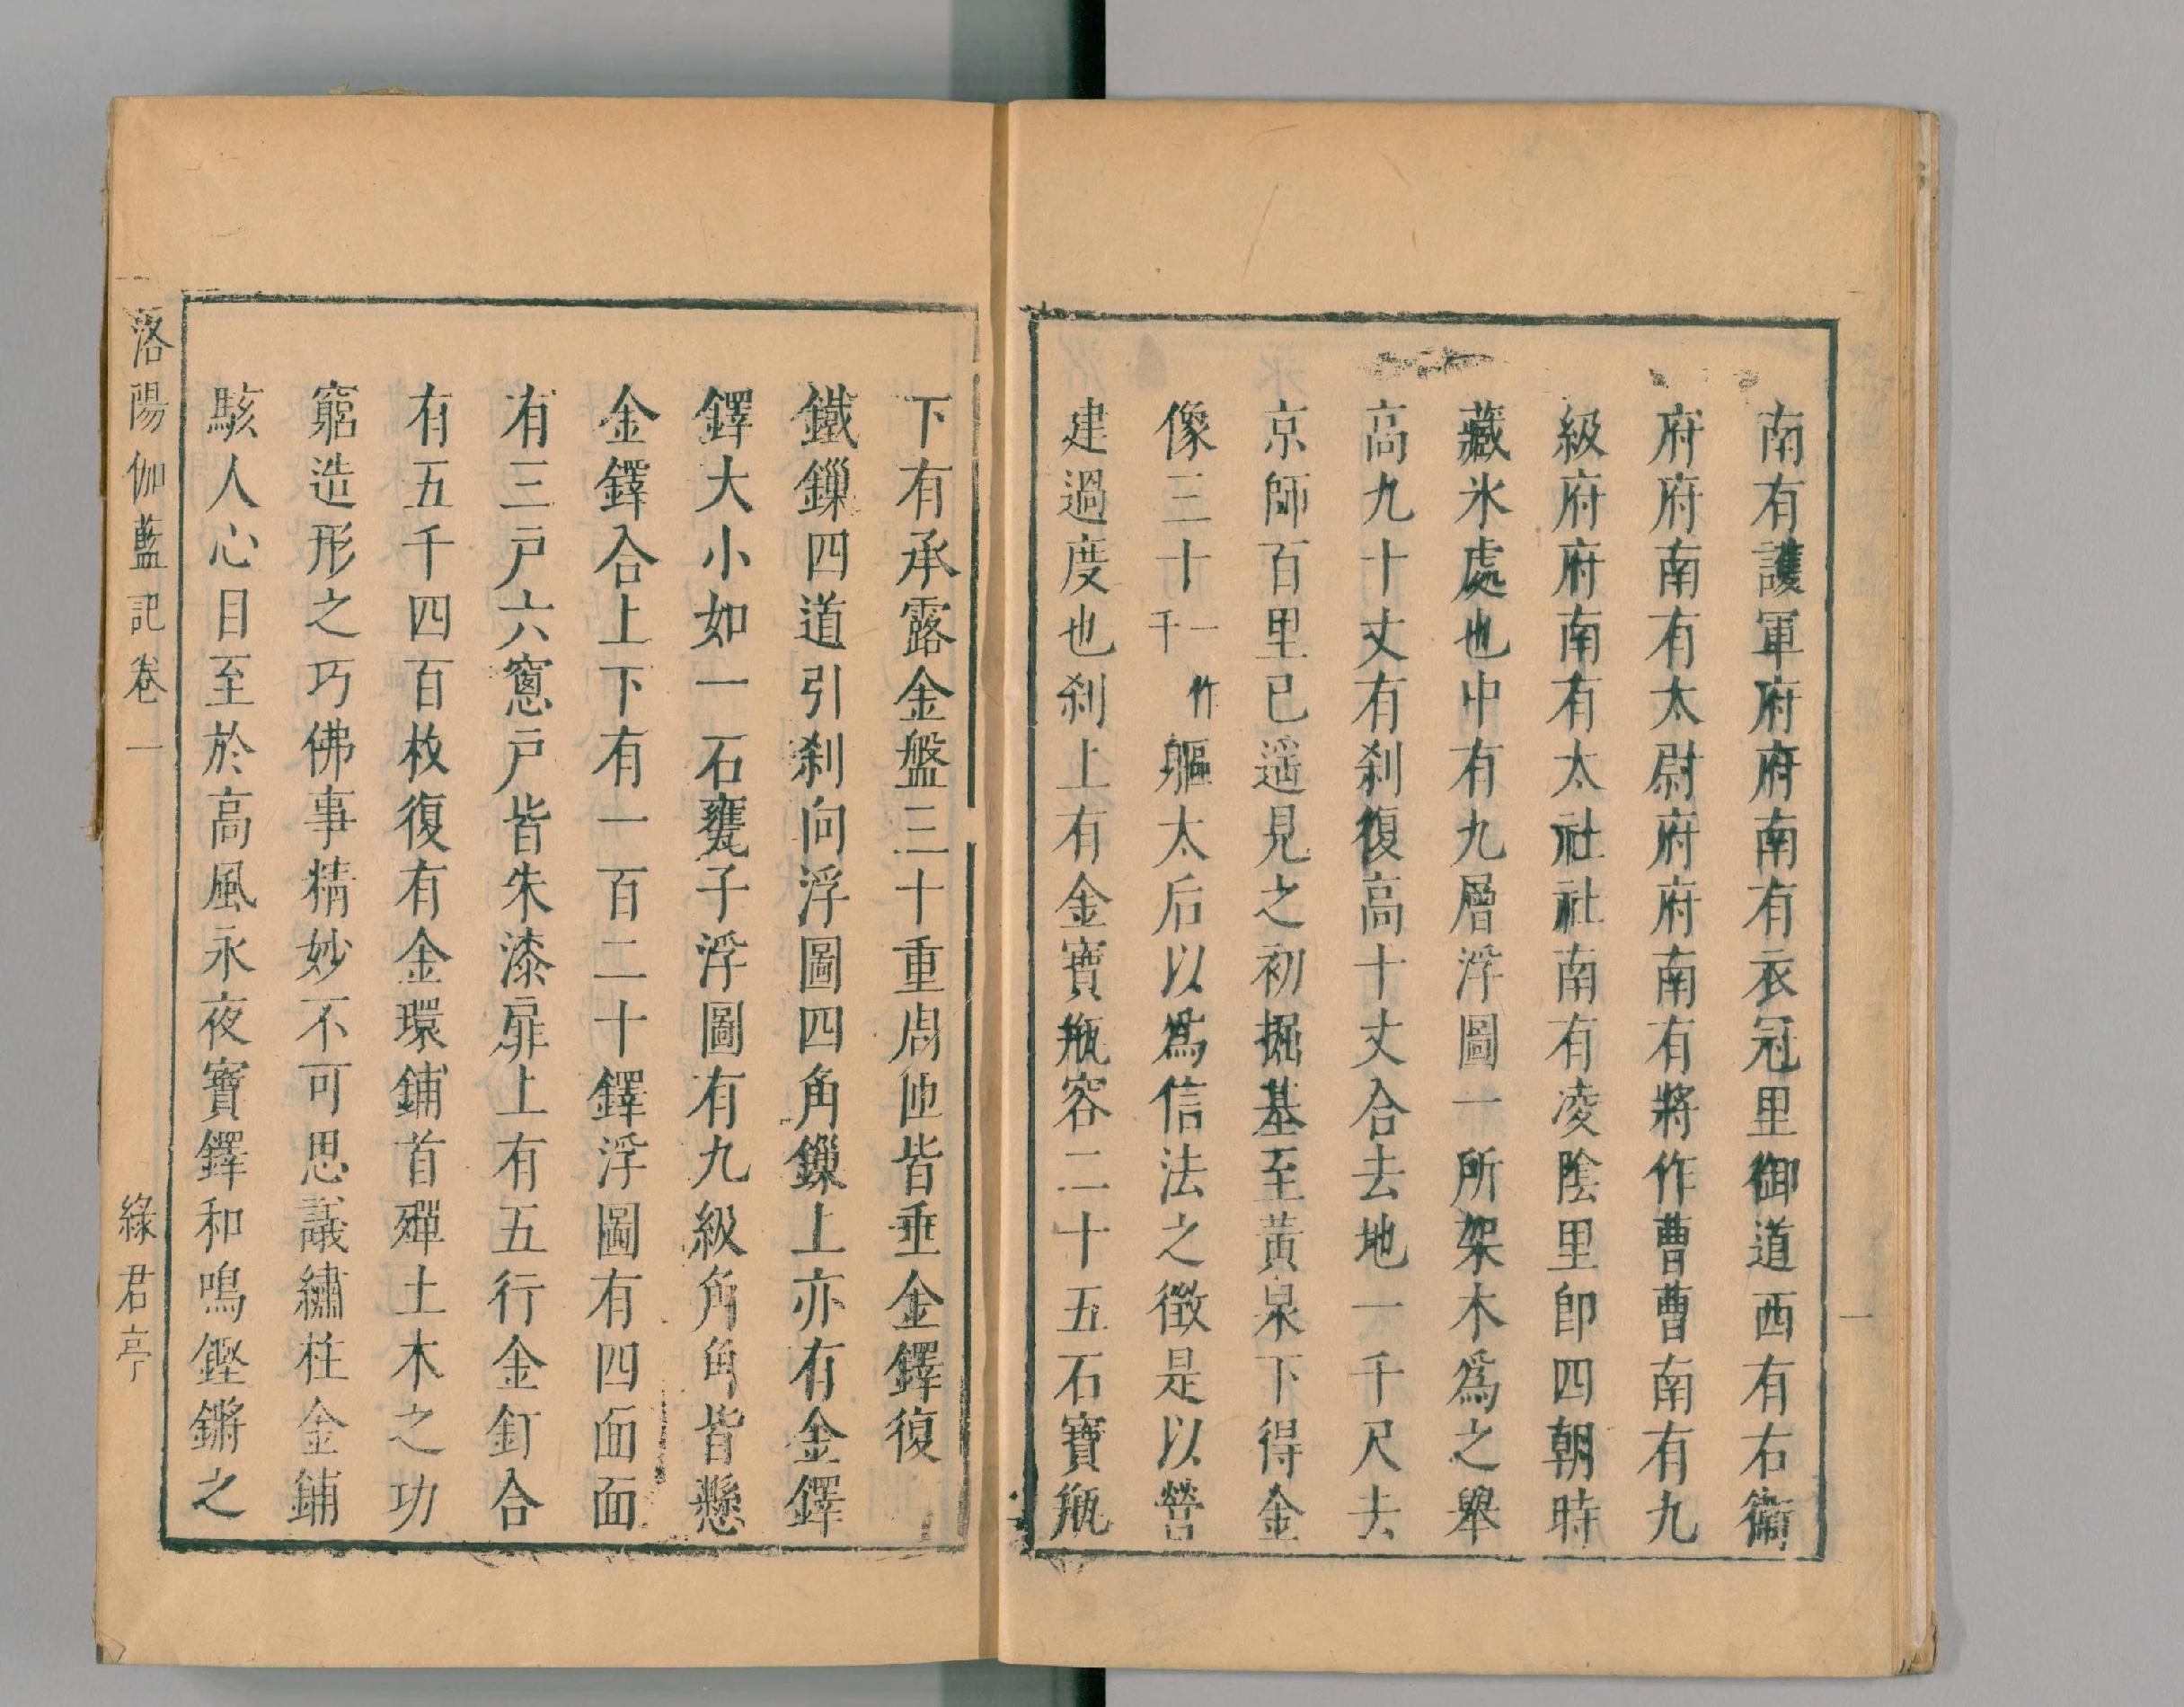 南有護軍府府南有衣冠里御道西有右衞
府府南有太尉府府南有將作曹曹南有九
級府府南有太社社南有凌陰里卽四朝時
藏氷處也中有九層浮圖一所架木爲之舉
高九十丈有刹復高十丈合去地一千尺去
京師百里已遥見之初掘基至黃泉下得金
像三十一作千軀太后以爲信法之徵是以營
建過度也刹上有金寶瓶容二十五石寶瓶
一
下有承露金盤三十重周匝皆垂金鐸復
鐵鏁四道引刹向浮圖四角鏁上亦有金鐸
鐸大小如一石甕子浮圖有九級角角皆懸
金鐸合上下有一百二十鐸浮圖有四面面
有三戸六窻戸皆朱漆扉上有五行金釘合
有五千四百枚復有金環鋪首殫土木之功
窮造形之巧佛事精妙不可思議繡柱金鋪
駭人心目至於高風永夜寶鐸和鳴鏗鏘之
洛陽伽藍記卷一
綠君亭